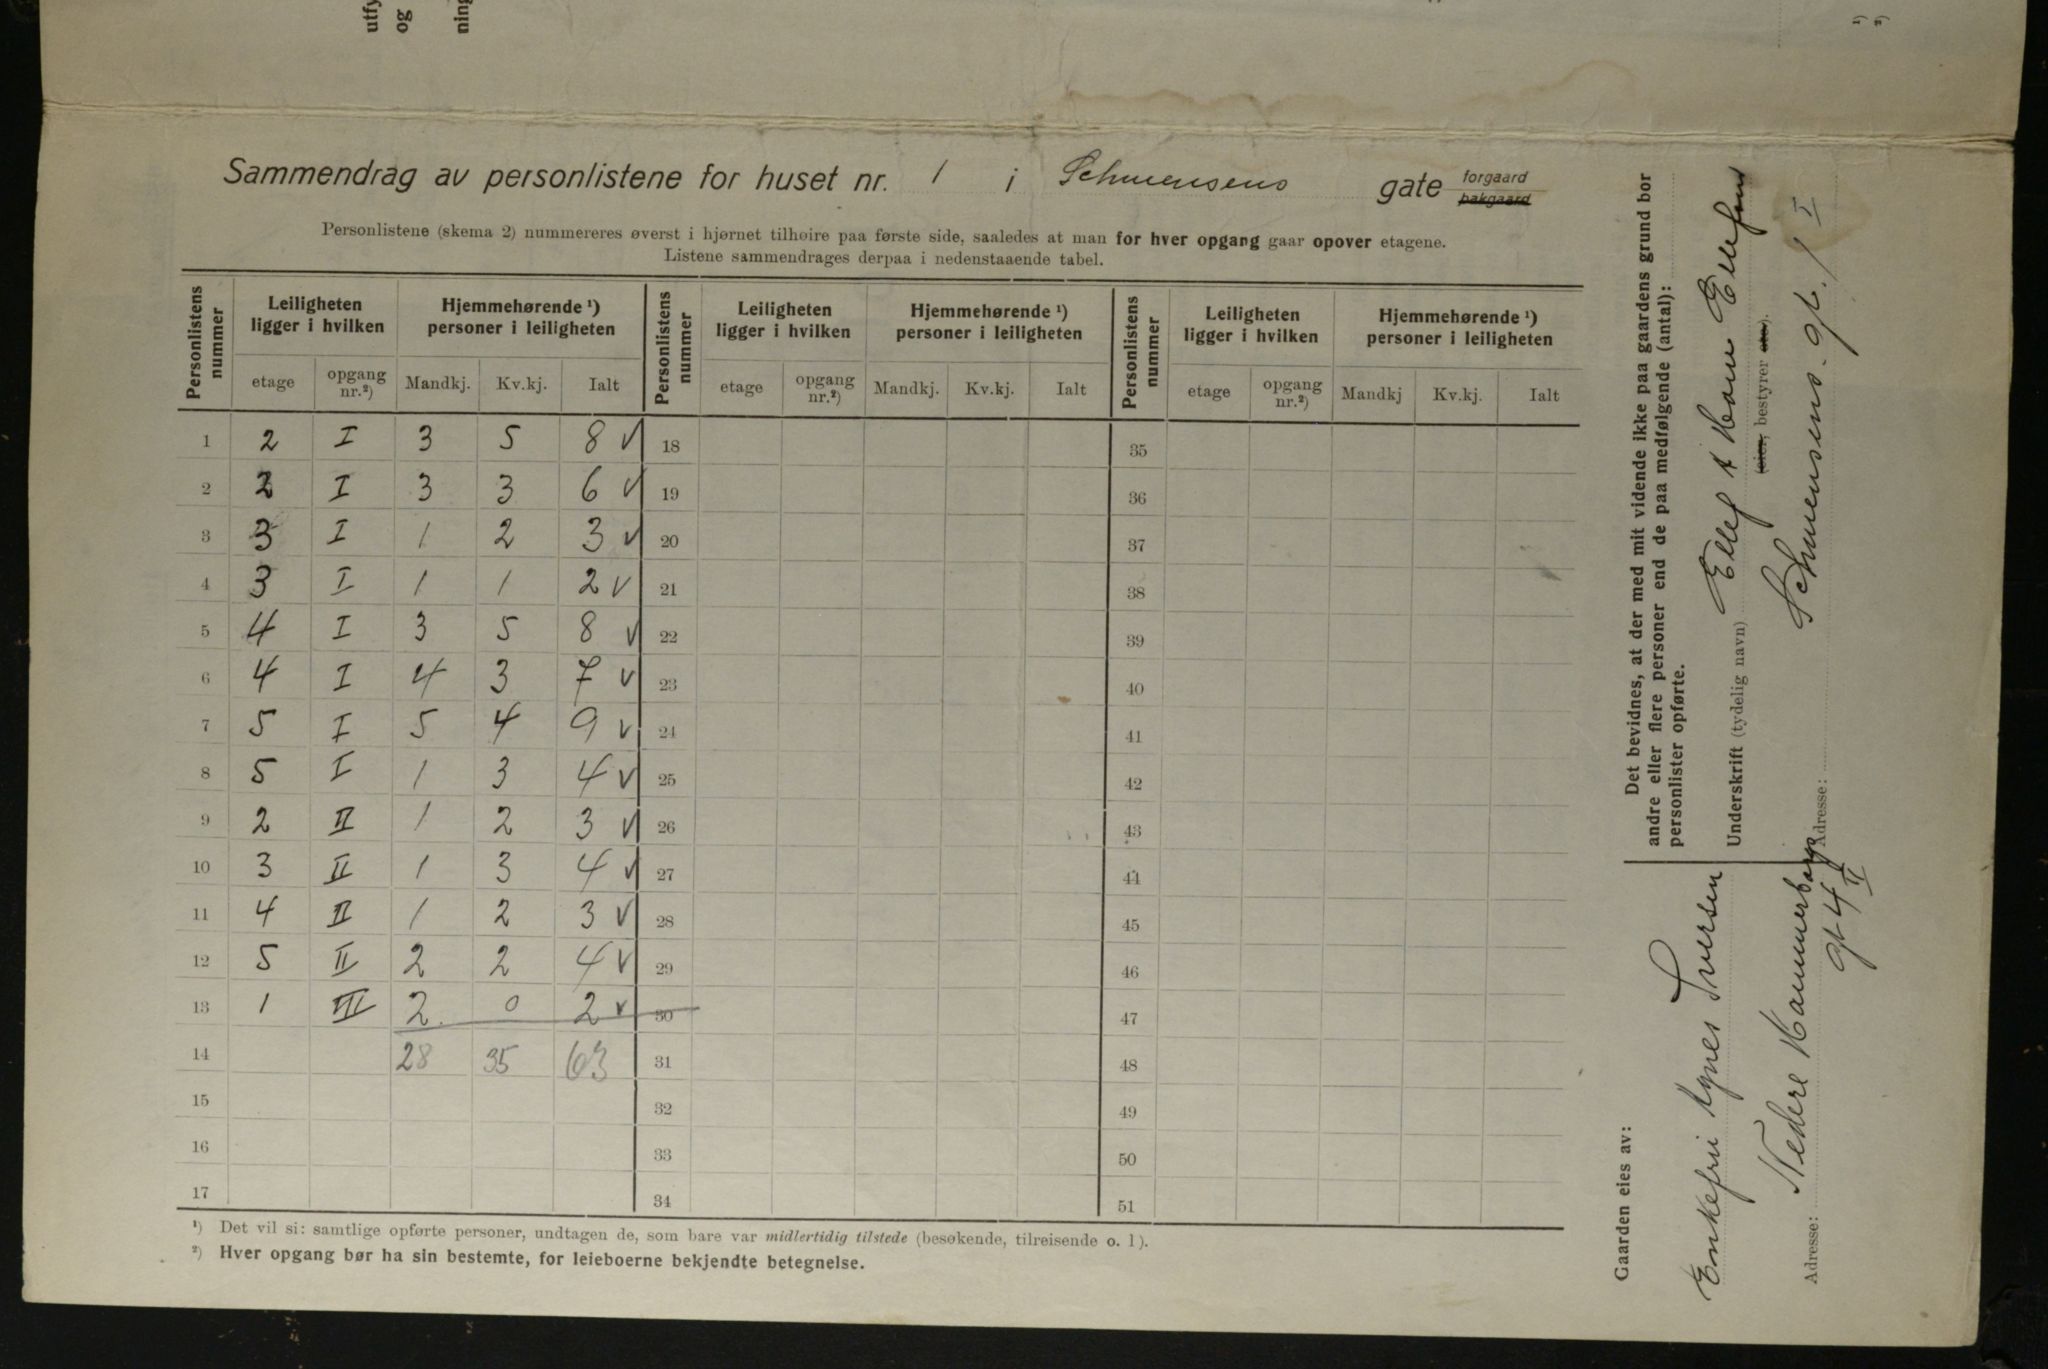 utfy
og
ning
¹)
²)
Sammendrag av personlistene for huset nr. 1 i Schwensens gate forgaard
bakgaard
Personlistene (skema 2) nummereres øverst i hjørnet tilhøire paa første side, saaledes at man for hver opgang gaar opover etagene.
Listene sammendrages derpaa i nedenstaaende tabel.
Personlistens nummer | Leiligheten ligger i hvilken | Hjemmehørende ¹) personer i leiligheten | Personlistens nummer | Leiligheten ligger i hvilken | Hjemmehørende ¹) personer i leiligheten | Personlistens nummer | Leiligheten ligger i hvilken | Hjemmehørende ¹) personer i leiligheten
etage | opgang nr.²) | Mandkj. | Kv.kj. | Ialt | etage | opgang nr.²) | Mandkj. | Kv.kj. | Ialt | etage | opgang nr.²) | Mandkj | Kv.kj. | Ialt
1 2 I 3 5 8 ✓ 18 35
2 2 I 3 3 6 ✓ 19 36
3 3 I 1 2 3 ✓ 20 37
4 3 I 1 1 2 ✓ 21 38
5 4 I 3 5 8 ✓ 22 39
6 4 I 4 3 7 ✓ 23 40
7 5 I 5 4 9 ✓ 24 41
8 5 I 1 3 4 ✓ 25 42
9 2 II 1 2 3 ✓ 26 43
10 3 II 1 3 4 ✓ 27 44
11 4 II 1 2 3 ✓ 28 45
12 5 II 2 2 4 ✓ 29 46
13 1 III 2 0 2 ✓ 30 47
14 28 35 63 31 48
15 32 49
16 33 50
17 34 51
¹) Det vil si: samtlige opførte personer, undtagen de, som bare var midlertidig tilstede (besøkende, tilreisende o. l).
²) Hver opgang bør ha sin bestemte, for leieboerne bekjendte betegnelse.
Det bevidnes, at der med mit vidende ikke paa gaardens grund bor
andre eller flere personer end de paa medfølgende (antal):
personlister opførte.
Underskrift (tydelig navn) Ellef Ellefsen
(eier, bestyrer etc.).
Adresse: Schwensens gt. 1 I
Gaarden eies av:
Enkefru Agnes Iversen
Adresse: Nedre Hammerborg
gt 4 II